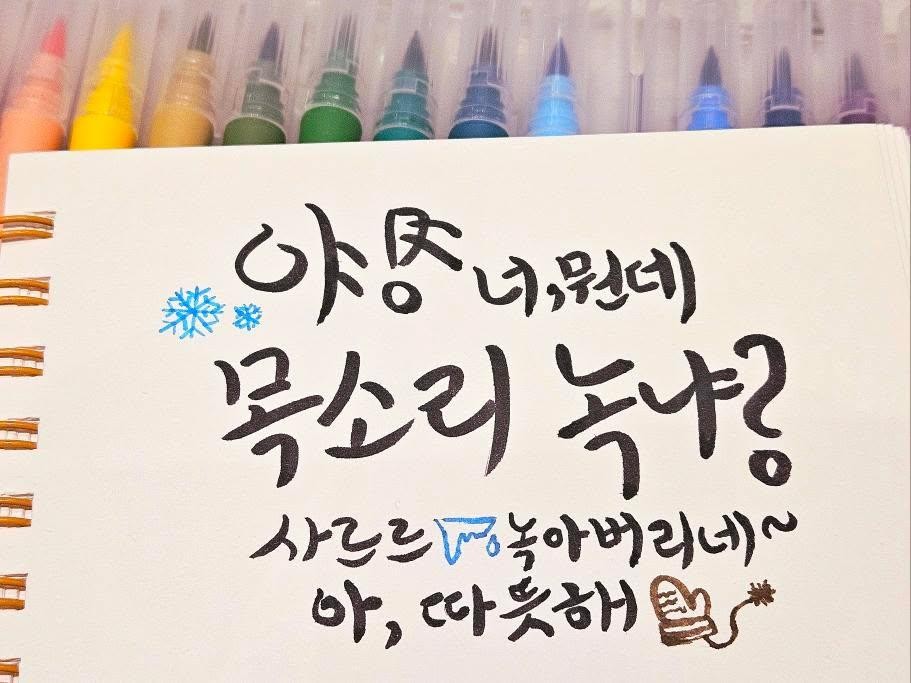 너, 뭔데
목소리 녹냐?
사르르 녹아버리네~
아, 따뜻해